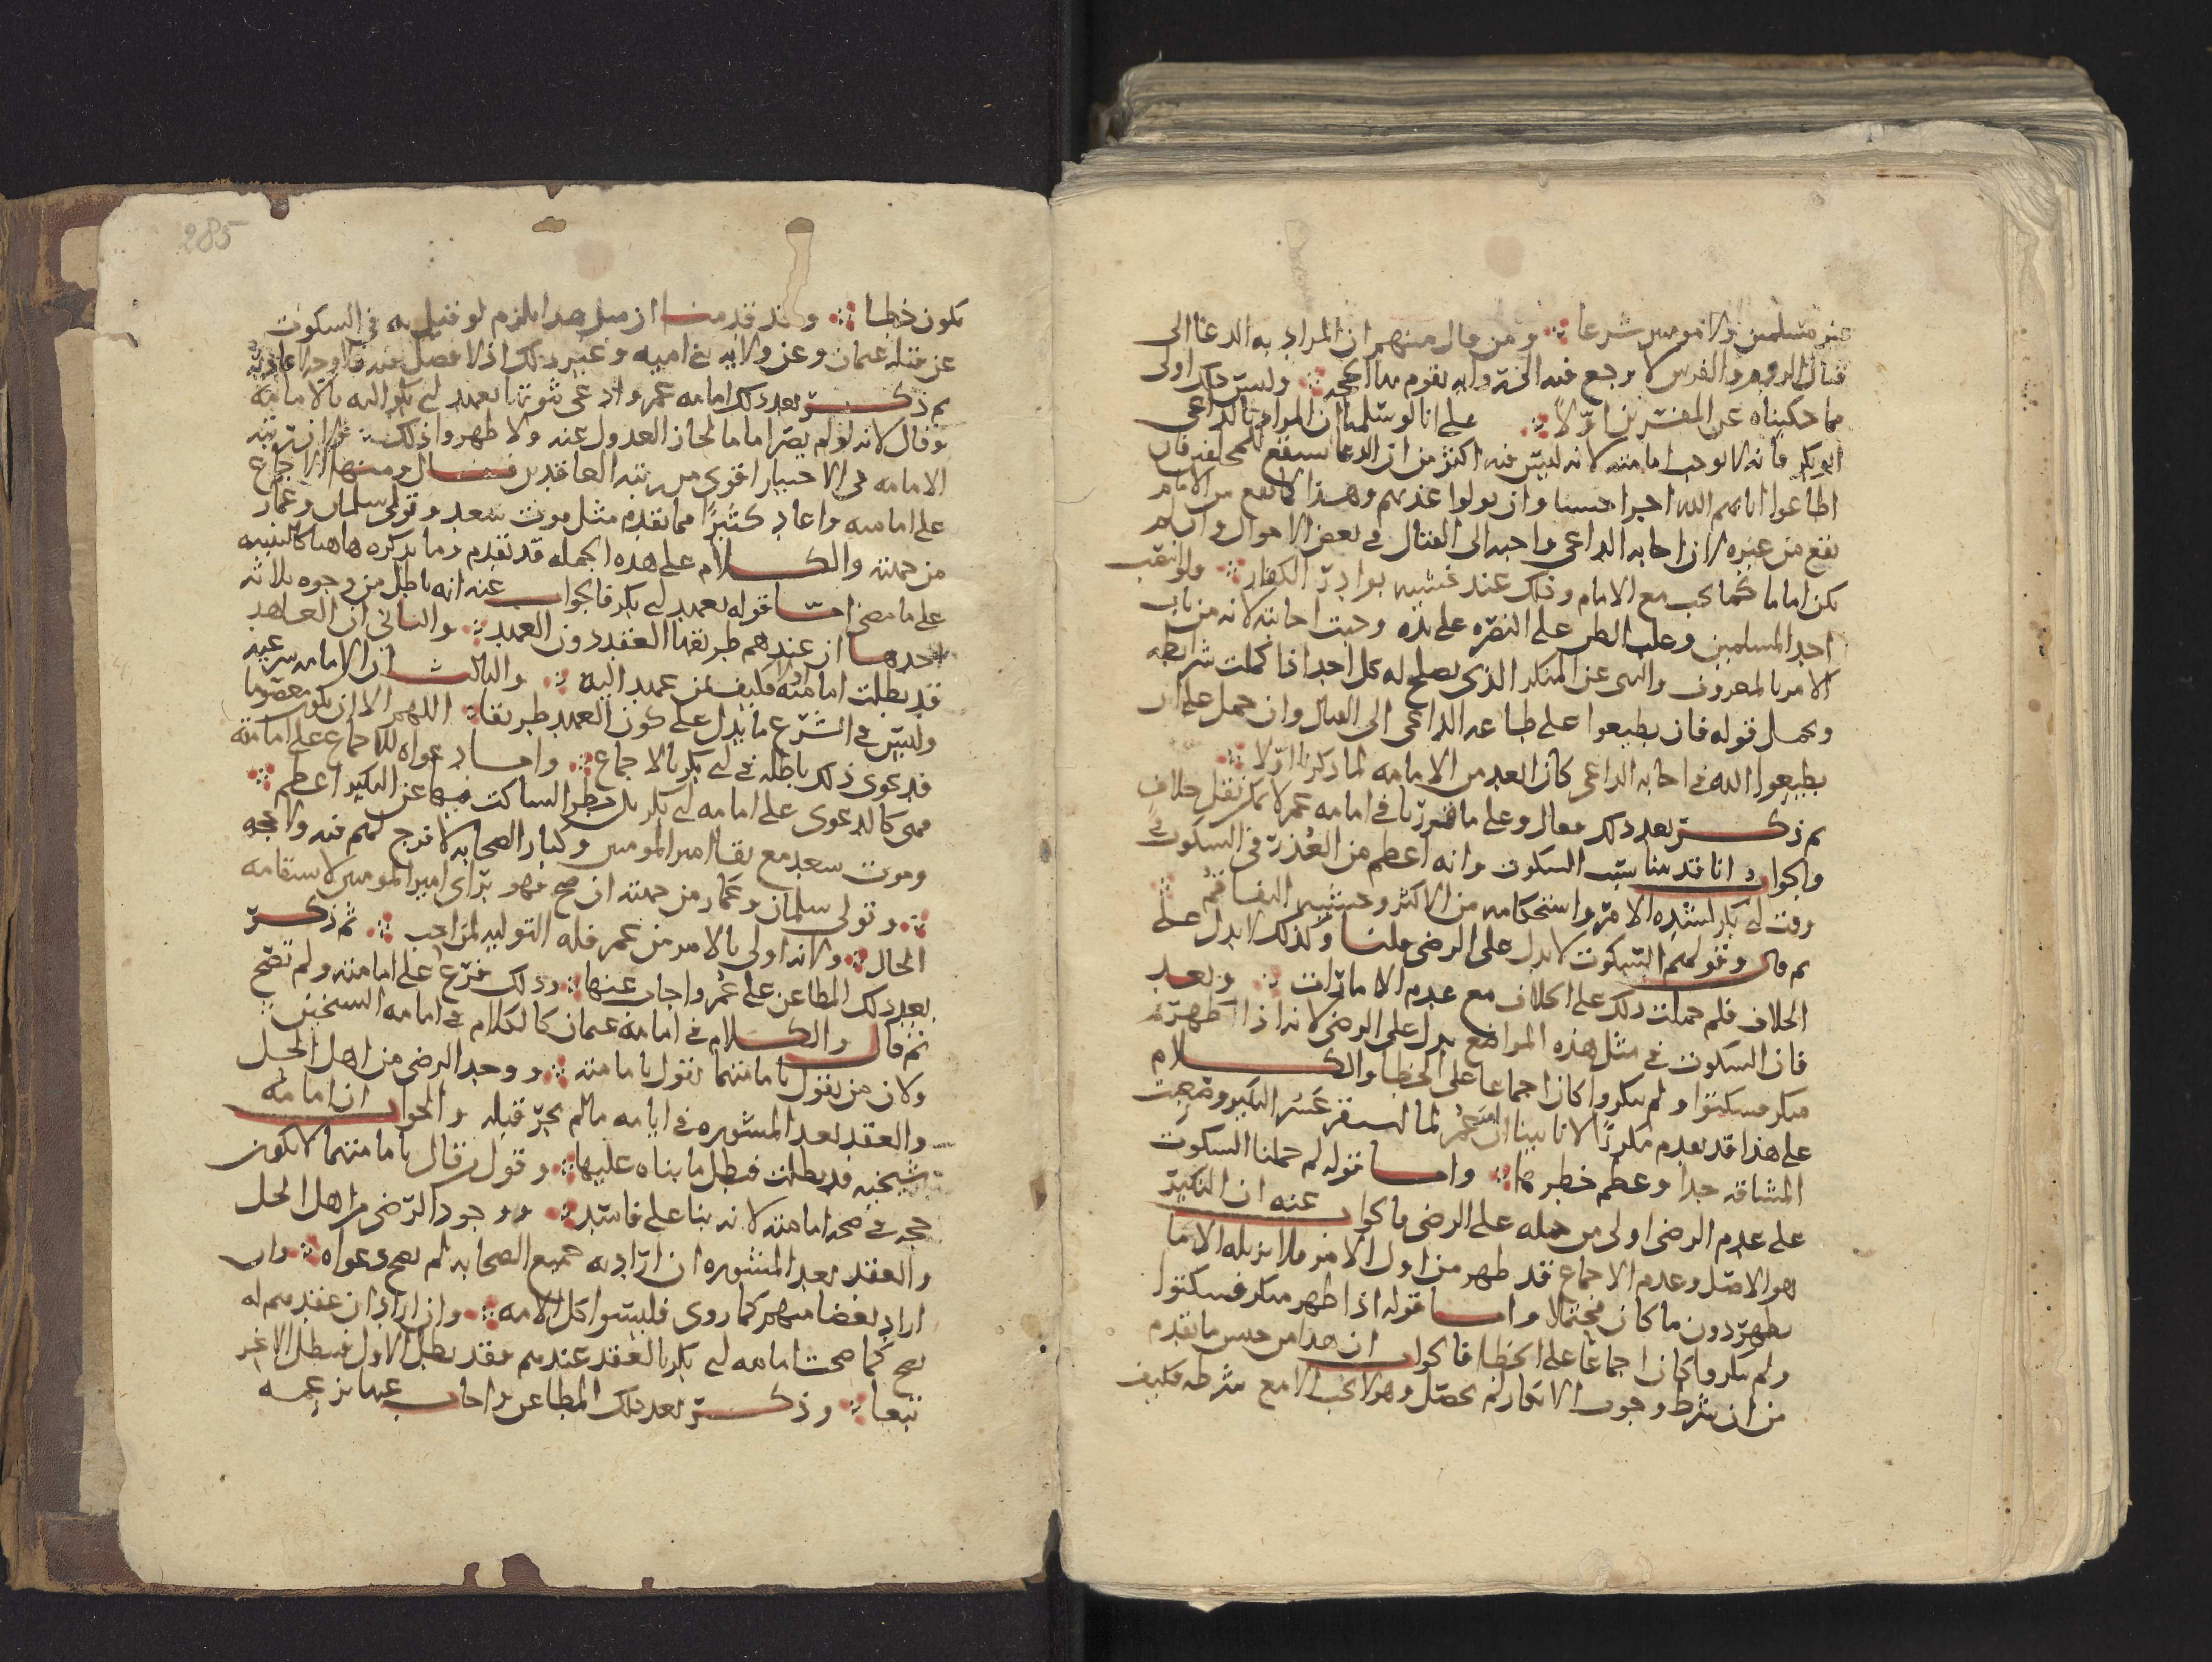 غير مسلمين ولا مومنين شرعا ومن قال منهم ان المراد به الدعا الى
قتال الروم والفرس لا يرجع فيه الى وليس ذلك اولى
مما حكيناه عن المفسرين اولا على انا لو سلمنا ان المراد بالداعي
ابو بكر فانه لا يوجب امامته لانه ليس فيه اكثر من ان الدعا سيقع للمخلفين فان
اطاعوا اتاهم الله اجرا حسنا وان تولوا عذبهم وهذا كما يقع من الامام
يقع من غيره لان اجابه الداعي واجبه الى القتال في بعض الاحوال وان لم
يكن اماما كما يجب مع الامام وذلك عند خشيه بوادر الكفار ولو انتدب
احد المسلمين وغلب الظن على النصره على يده وجبت اجابته لانه من باب
الامر بالمعروف والنهي عن المنكر الذي يصلح له كل احد اذا كملت شرايطه
ويحمل قوله فان يطيعوا على طاعه الداعي الى القتال وان حمل على ان
يطيعوا الله في اجابه الداعي كان ابعد من الامامه لما ذكرنا اولا
ثم ذكر بعد ذلك فقال وعلى ما قررنا في امامه عمر لا يمكن نقل خلاف
والجواب انا قد بينا سبب السكوت وانه اعظم من العذر في السكوت في
وقت ابي بكر لشده الامر واستحكامه من الاكثر وخشيه التفاقم
ثم قال وقولهم السكوت لا يدل على الرضى قلنا وكذلك لا يدل على
الخلاف فلم حملت ذلك على الخلاف مع عدم الامارات وبعد
فان السكوت في مثل هذه المواضع يدل على الرضى لانه اذا ظهر
منكر فسكتوا ولم ينكروا كان اجماعا على الخطا والكلام
على هذا قد تقدم مكررا لانا بينا ان عمر لما استقر عسر النكير وصعبت
المشاقه جدا وعظم خطرها واما قوله لم حملنا السكوت
على عدم الرضى اولى من حمله على الرضى فالجواب عنه ان النكير
هو الاصل وعدم الاجماع قد ظهر من اول الامر فلا يزيله الا ما
يظهر دون ما كان محتملا واما قوله اذا ظهر منكر فسكتوا
ولم ينكروا كان اجماعا على الخطا فالجواب ان هذا من جنس ما تقدم
من ان شرط وجوب الانكار لم يحصل وهو لا يجب الا مع شرطه فكيف
285
يكون خطا وقد قدمنا ان مثل هذا يلزم لو قيل به في السكوت
عن قتله عثمان وعن ولايه بني اميه وغير ذلك اذ لا فصل
ثم ذكر بعد ذلك امامه عمر وادعى ثبوتها بعهد ابي بكر اليه بالامامه
وقال لانه لو لم يصر اماما لجاز العدول عنه ولا ظهروا ذلك ولان رتبه
الامامه في الاختيار اقوى من رتبه العاقدين قال ومنها الاجماع
على امامته واعاد كثيرا مما تقدم مثل موت سعد وتولي سلمان وعمار
من جهته والكلام على هذه الجمله قد تقدم وما نذكره هاهنا كالتنبيه
على ما مضى اما قوله بعهد ابي بكر فالجواب عنه انه باطل من وجوه ثلاثه
احدها ان عندهم طريقها العقد دون العهد والثاني ان العاهد
قد بطلت امامته فكيف بمن عهد اليه والثالث ان الامامه شرعيه
وليس في الشرع ما يدل على كون العهد طريقا اللهم الا ان يكون معصوما
فدعوى ذلك باطله في ابي بكر بالاجماع واما دعواه للاجماع على امامته
فهي كالدعوى على امامه ابي بكر بل خطر الساكت فيها عن النكير اعظم
وموت سعد مع بقا امير المومنين وكبار الصحابه لا فرج لهم فيه ولا حجه
وتولي سلمان وعمار من جهته ان صح فهو براي امير المومنين لاستقامه
الحال ولانه اولى بالامر من عمر فله التوليه لمن احب ثم ذكر
بعد ذلك المطاعن على عمر واجاب عنها وذلك فرع على امامته ولم تصح
ثم قال والكلام في امامه عثمان كالكلام في امامه الشيخين
ولان من يقول بامامتهما يقول بامامته ووجد الرضى من اهل الحل
والعقد بعد المشوره في ايامه ما لم يجر قبله والجواب ان امامه
شيخيه قد بطلت فبطل ما بناه عليها وقول من قال بامامتهما لا يكون
حجه في صحه امامته لانه بنا على فاسد ووجود الرضى من اهل الحل
والعقد بعد المشوره ان اراد به جميع الصحابه لم يصح دعواه وان
اراد بعضا منهم كما روى فليسوا كل الامه وان اراد ان عقدهم له
يصح كما صحت امامه ابي بكر بالعقد عندهم فقد بطل الاول فبطل الاخر
تبعا وذكر بعد ذلك المطاعن واجاب عنها بزعمه